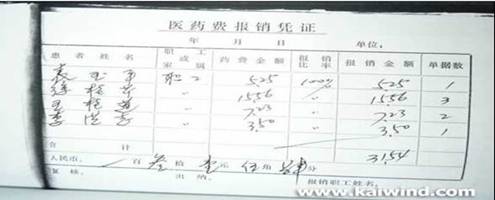 医药费报销凭证
年 月 日 单位：
患者姓名 职工或家属 药费金额 报销比率 报销金额 单据数
袁玉 职工 5.25 100% 5.25 1
〃 15.56 〃 15.56 3
〃 7.23 〃 7.23 2
李浩 〃 3.50 〃 3.50 1
合计 31.54
人民币： 百叁拾壹元伍角肆分
复核： 出纳： 报销职工姓名：
www.kaiwind.com